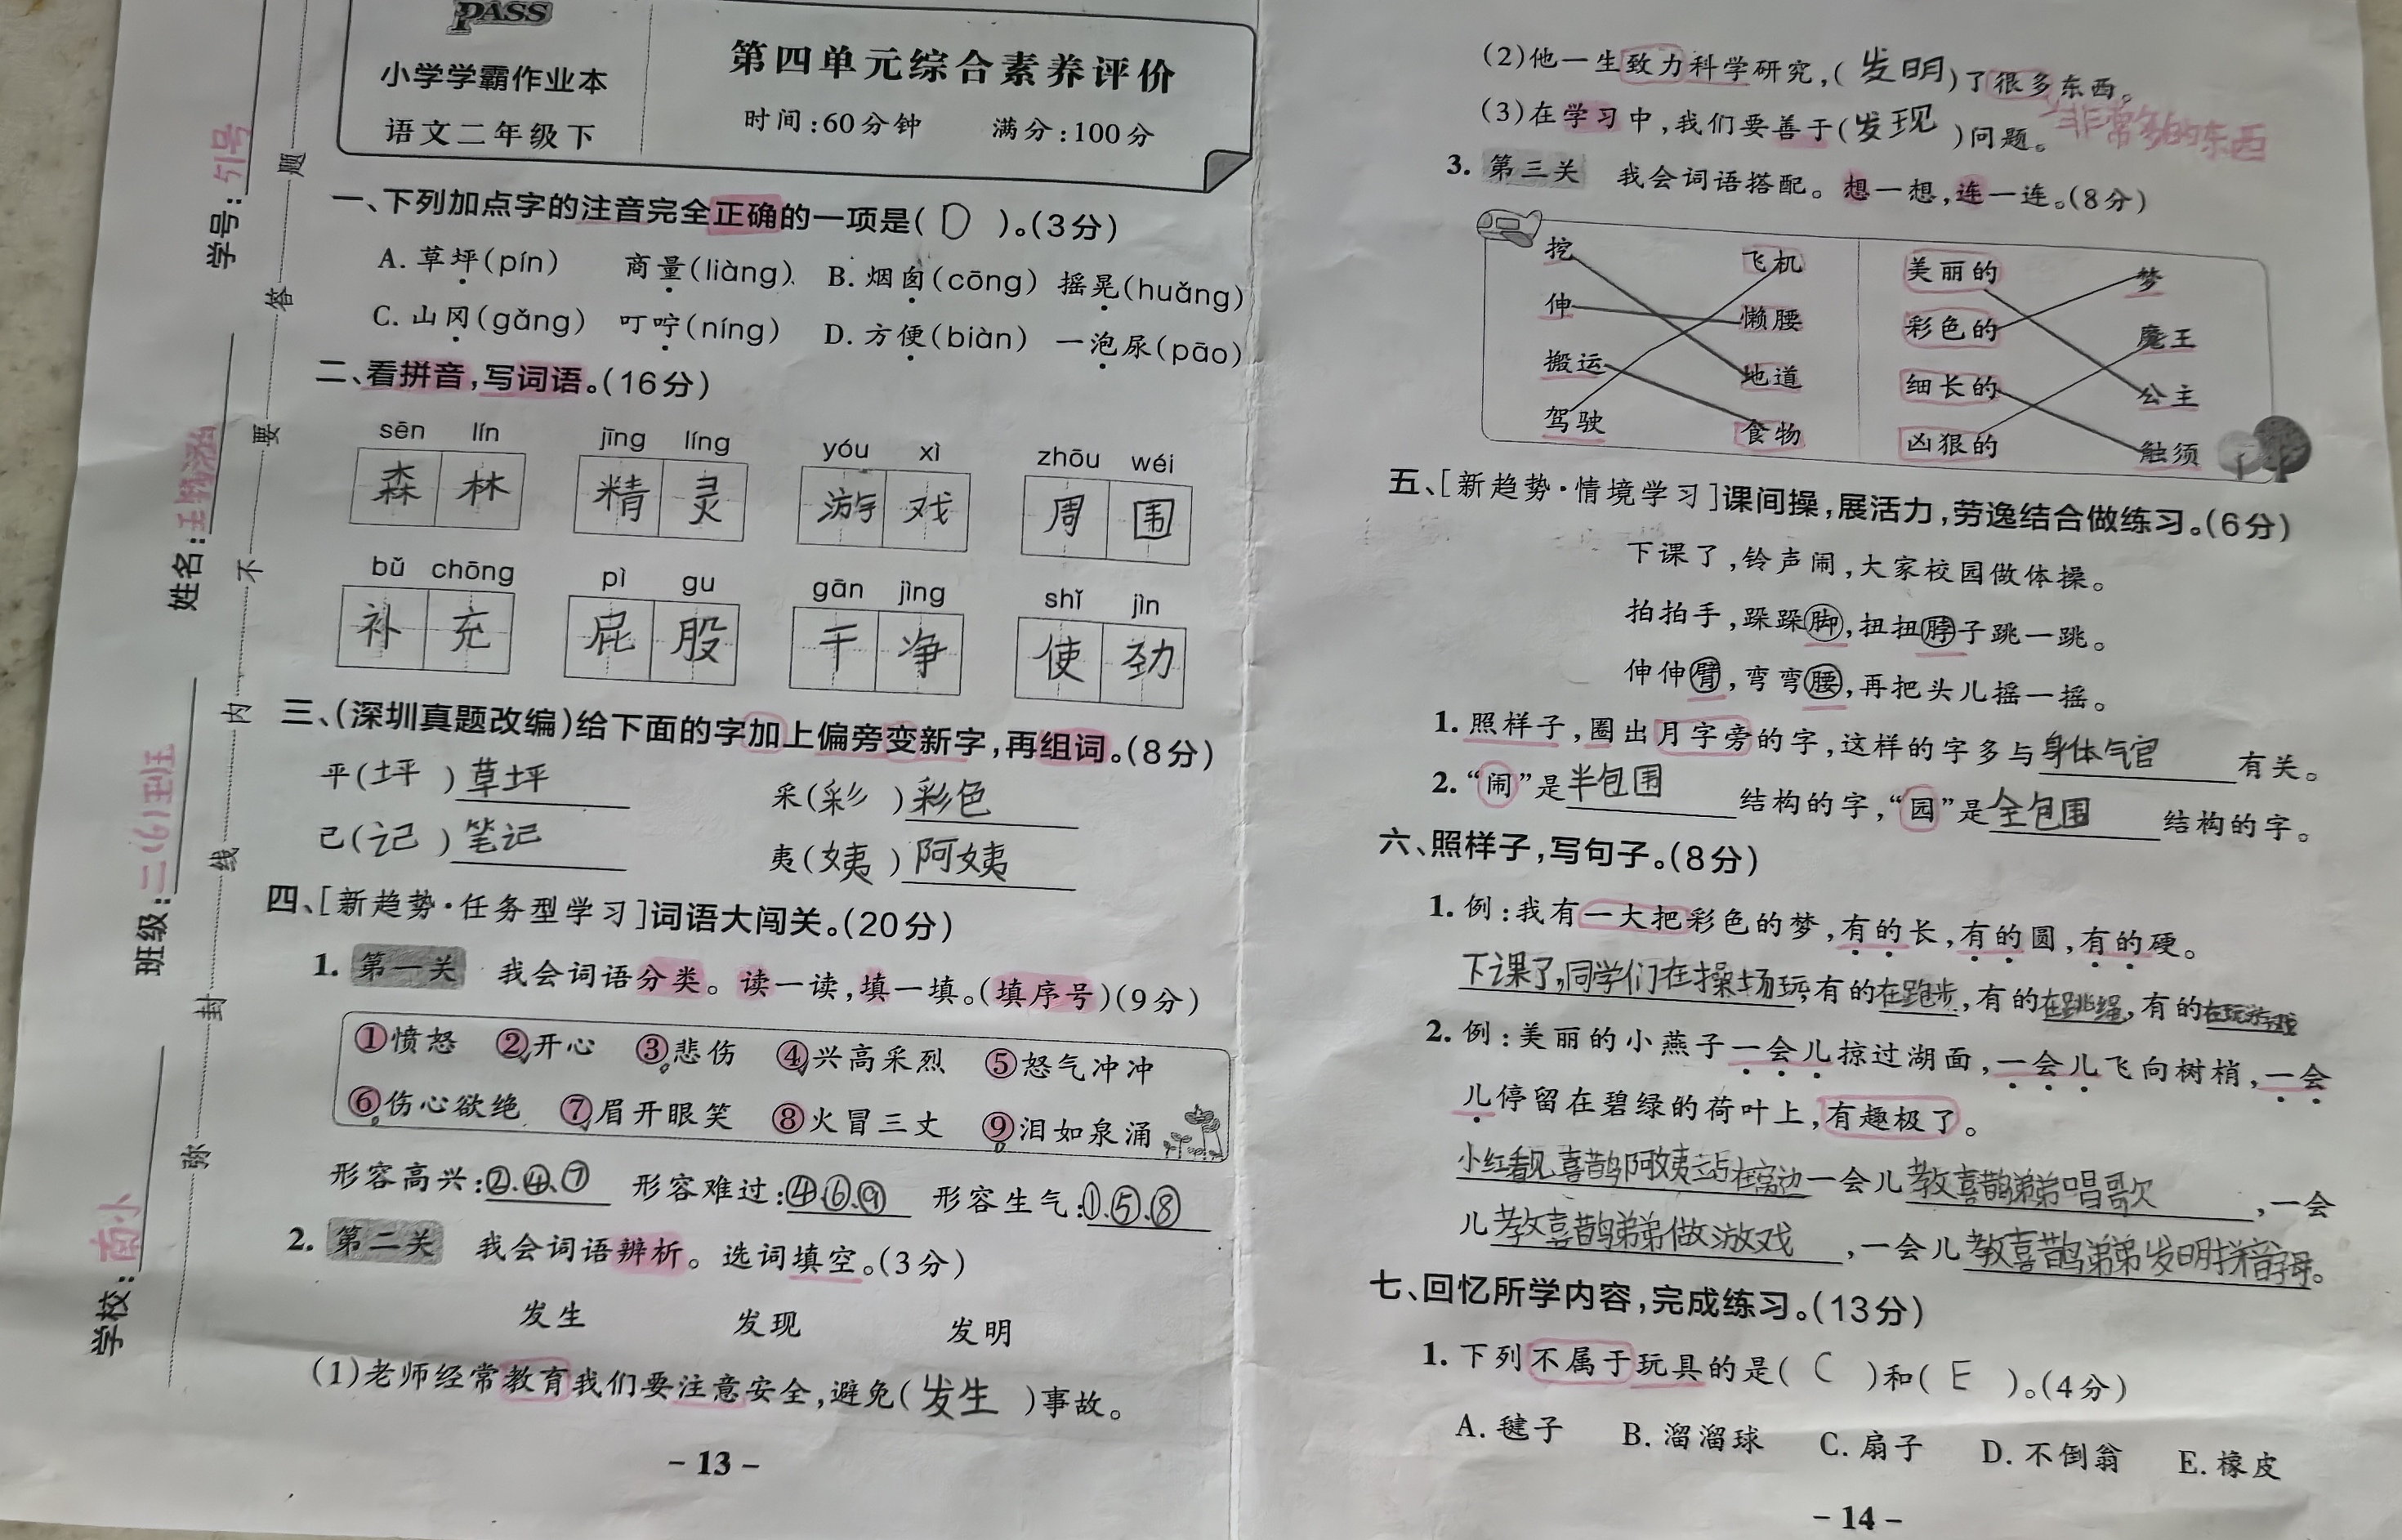 PASS
小学学霸作业本
语文二年级下
第四单元综合素养评价
时间:60分钟 满分:100分
学号:51号
姓名:王
班级:二(6)班
学校:
弥 封 线 内 不 要 答 题
一、下列加点字的注音完全正确的一项是( D )。(3分)
A. 草坪(pín) 商量(liàng) B. 烟囱(cōng) 摇晃(huǎng)
C. 山冈(gǎng) 叮咛(níng) D. 方便(biàn) 一泡尿(pāo)
二、看拼音,写词语。(16分)
sēn lín jīng líng yóu xì zhōu wéi
森林 精灵 游戏 周围
bǔ chōng pì gu gān jìng shǐ jìn
补充 屁股 干净 使劲
三、(深圳真题改编)给下面的字加上偏旁变新字,再组词。(8分)
平(坪)草坪 采(彩)彩色
己(记)笔记 夷(姨)阿姨
四、[新趋势·任务型学习]词语大闯关。(20分)
1. 第一关 我会词语分类。读一读,填一填。(填序号)(9分)
①愤怒 ②开心 ③悲伤 ④兴高采烈 ⑤怒气冲冲
⑥伤心欲绝 ⑦眉开眼笑 ⑧火冒三丈 ⑨泪如泉涌
形容高兴:②.④.⑦ 形容难过:④.⑥.⑨ 形容生气:①.⑤.⑧
2. 第二关 我会词语辨析。选词填空。(3分)
发生 发现 发明
(1)老师经常教育我们要注意安全,避免(发生)事故。
-13-
(2)他一生致力科学研究,(发明)了很多东西。
(3)在学习中,我们要善于(发现)问题。
非常多的东西
3. 第三关 我会词语搭配。想一想,连一连。(8分)
挖 飞机 美丽的 梦
伸 懒腰 彩色的 魔王
搬运 地道 细长的 公主
驾驶 食物 凶狠的 触须
五、[新趋势·情境学习]课间操,展活力,劳逸结合做练习。(6分)
下课了,铃声闹,大家校园做体操。
拍拍手,跺跺脚,扭扭脖子跳一跳。
伸伸臂,弯弯腰,再把头儿摇一摇。
1. 照样子,圈出月字旁的字,这样的字多与身体气官有关。
2. “闹”是半包围结构的字,“园”是全包围结构的字。
六、照样子,写句子。(8分)
1. 例:我有一大把彩色的梦,有的长,有的圆,有的硬。
下课了,同学们在操场玩,有的在跑步,有的在跳绳,有的在玩游戏
2. 例:美丽的小燕子一会儿掠过湖面,一会儿飞向树梢,一会
儿停留在碧绿的荷叶上,有趣极了。
小红看见喜鹊阿姨站在窝边一会儿教喜鹊弟弟唱歌,一会
儿教喜鹊弟弟做游戏,一会儿教喜鹊弟弟发明拼音字母。
七、回忆所学内容,完成练习。(13分)
1. 下列不属于玩具的是( C )和( E )。(4分)
A. 毽子 B. 溜溜球 C. 扇子 D. 不倒翁 E. 橡皮
-14-